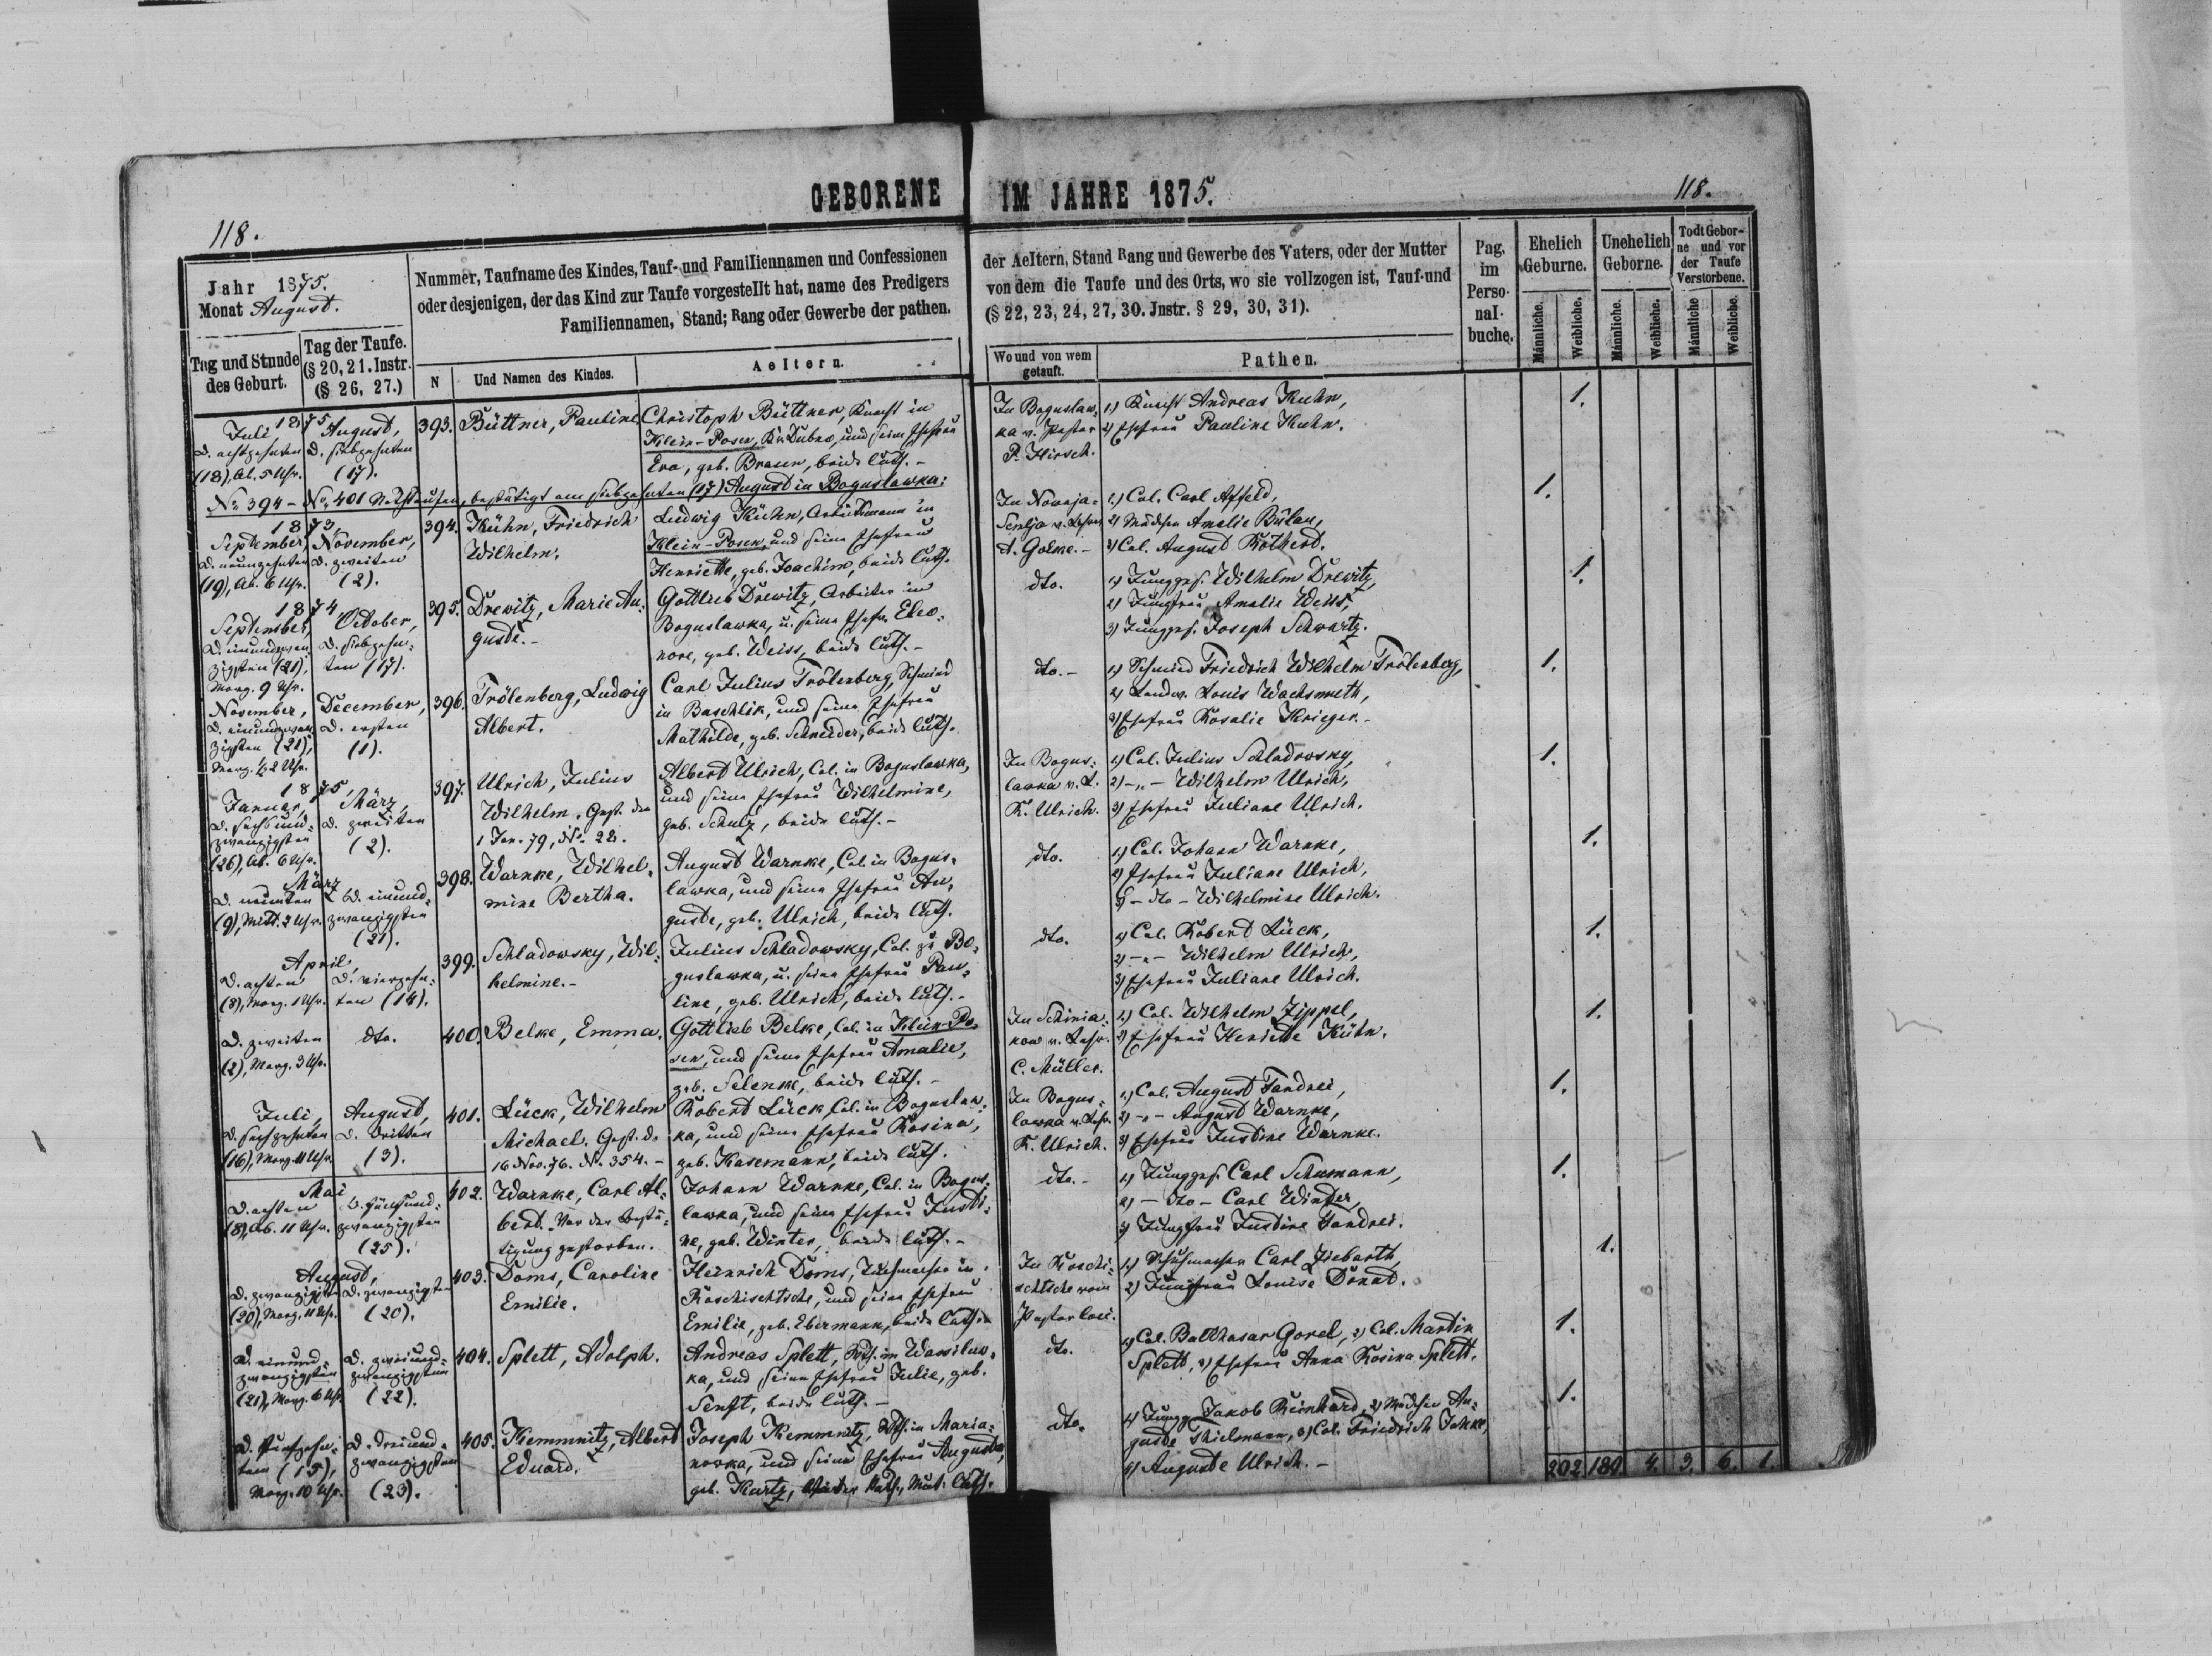 GEBORENE IM JAHRE 1875.
118.
118.
Jahr 1875.
Monat August.
Nummer, Taufname des Kindes, Tauf- und Familiennamen und Confessionen
oder desjenigen, der das Kind zur Taufe vorgestellt hat, name des Predigers
Familiennamen, Stand; Rang oder Gewerbe der pathen.
der Aeltern, Stand Rang und Gewerbe des Vaters, oder der Mutter
von dem die Taufe und des Orts, wo sie vollzogen ist, Tauf-und
(§ 22, 23, 24, 27, 30. Jnstr. § 29, 30, 31).
Pag.
im
Perso-
nal-
buche.
Ehelich
Geburne.
Unehelich
Geborne.
Todt Gebor-
ne und vor
der Taufe
Verstorbene.
Männliche.
Weibliche.
Männliche.
Weibliche.
Männliche
Weibliche.
Tag und Stunde
des Geburt.
Tag der Taufe.
(§ 20, 21. Instr.
(§ 26, 27.)
N
Und Namen des Kindes.
Aeltern.
Wo und von wem
getauft.
Pathen.
1875
Juli
d. achtzehnten
(18), Ab. 5 Uhr.
August,
d. siebzehnten
(17).
393.
Büttner, Pauline
Christoph Büttner, Knecht in
Klein-Posen, Kr. Dubno, und seine Ehefrau
Eva, geb. Brauen, beide luth. -
In Boguslaw-
ka v. Pastor
P. Hirsch.
1) Knecht Andreas Kuhn,
2) Ehefrau Pauline Kuhn.
1.
No 394 - No 401 Nothtaufen, bestätigt am siebzehnten (17) August in Boguslawka:
1873,
September,
d. neunzehnten
(19), Ab. 6 Uhr.
November,
d. zweiten
(2).
394.
Kühn, Friedrich
Wilhelm.
Ludwig Kühn, Arbeitsmann in
Klein-Posen, und seine Ehefrau
Henriette, geb. Joachim, beide luth.
In Nowaja-
Semlja v. Lehrer
A. Golke. -
1) Col. Carl Affeld,
2) Mädchen Amalie Bülau,
3) Col. August Rothert.
1.
1874,
September,
d. einundzwan-
zigsten (21),
Morg. 9 Uhr.
October,
d. siebzehn-
ten (17).
395.
Drewitz, Marie Au-
guste. -
Gottlieb Drewitz, Arbeiter in
Boguslawka, u. seine Ehefr. Eleo-
nore, geb. Weiss, beide luth. -
dto.
1) Junggs. Wilhelm Drewitz,
2) Jungfrau Amalie Weiss,
3) Junggs. Joseph Schwartz.
1.
November,
d. einundzwan-
zigsten (21),
Morg. ½2 Uhr.
December,
d. ersten
(1).
396.
Trölenberg, Ludwig
Albert.
Carl Julius Trölenberg, Schmied
in Baschlik, und seine Ehefrau
Mathilde, geb. Schneider, beide luth.
dto. -
1) Schmied Friedrich Wilhelm Trölenberg,
2) Landw. Louis Wachsmuth,
3) Ehefrau Rosalie Krieger. -
1.
1875,
Januar,
d. sechsund-
zwanzigsten
(26), Ab. 6 Uhr.
März,
d. zweiten
(2).
397.
Ulrich, Julius
Wilhelm. Gest. den
1 Jan. 79, No. 22.
Albert Ulrich, Col. in Boguslawka,
und seine Ehefrau Wilhelmine,
geb. Schulz, beide luth. -
In Bogus-
lawka v. L.
K. Ulrich.
1) Col. Julius Schladowsky,
2) -„- Wilhelm Ulrich,
3) Ehefrau Juliane Ulrich.
1.
März
d. neunten
(9), Mitt. 2 Uhr.
d. einund-
zwanzigsten
(21).
398.
Warnke, Wilhel-
mine Bertha.
August Warnke, Col. in Bogus-
lawka, und seine Ehefrau Au-
guste, geb. Ulrich, beide luth.
dto.
1) Col. Johann Warnke,
2) Ehefrau Juliane Ulrich,
3) - dto - Wilhelmine Ulrich.
1.
April,
d. achten
(8), Morg. 1 Uhr.
d. vierzehn-
ten (14).
399.
Schladowsky, Wil-
helmine. -
Julius Schladowsky, Col. zu Bo-
guslawka, u. seine Ehefrau Pau-
line, geb. Ulrich, beide luth. -
dto.
1) Col. Robert Lück,
2) -„- Wilhelm Ulrich,
3) Ehefrau Juliane Ulrich.
1.
d. zweiten
(2), Morg. 3 Uhr.
dto.
400.
Belke, Emma.
Gottlieb Belke, Col. in Klein-Po-
sen, und seine Ehefrau Amalie,
geb. Selenke, beide luth. -
In Schinia-
kow v. Lehr.
C. Müller.
1) Col. Wilhelm Zippel,
2) Ehefrau Henriette Kühn.
1.
Juli,
d. sechzehnten
(16), Morg. 11 Uhr.
August,
d. dritten
(3).
401.
Lück, Wilhelm
Michael. Gest. d.
16 Nov. 76. No. 354. -
Robert Lück, Col. in Boguslaw-
ka, und seine Ehefrau Rosina,
geb. Hasemann, beide luth.
In Bogus-
lawka v. Lehr.
K. Ulrich.
1) Col. August Jandrei,
2) -„- August Warnke,
3) Ehefrau Justine Warnke.
1.
Mai
d. achten
(8), Ab. 11 Uhr.
d. fünfund-
zwanzigsten
(25).
402.
Warnke, Carl Al-
bert. Vor der Bestä-
tigung gestorben.
Johann Warnke, Col. in Bogus-
lawka, und seine Ehefrau Justi-
ne, geb. Winter, beide luth. -
dto. -
1) Junggs. Carl Schumann,
2) - dto - Carl Winter,
3) Jungfrau Justine Jandrei.
1.
August,
d. zwanzigsten
(20), Morg. 11 Uhr.
d. zwanzigsten
(20).
403.
Doms, Caroline
Emilie.
Heinrich Doms, Tuchmacher in
Roschischtsche, und seine Ehefrau
Emilie, geb. Ebermann, beide luth.
In Roschi-
schtsche vom
Pastor loci.
1) Schuhmacher Carl Ziebarth,
2) Jungfrau Louise Donat.
1.
d. einund-
zwanzigsten
(21), Morg. 6 Uhr.
d. zweiund-
zwanzigsten
(22).
404.
Splett, Adolph.
Andreas Splett, Wth. in Wassilew-
ka, und seine Ehefrau Julie, geb.
Senft, beide luth. -
dto.
1) Col. Balthasar Gorel, 2) Col. Martin
Splett, 3) Ehefrau Anna Rosina Splett.
1.
d. fünfzehn-
ten (15),
Morg. 10 Uhr.
d. dreiund-
zwanzigsten
(23).
405.
Kemmnitz, Albert
Eduard.
Joseph Kemmnitz, Wth. in Maria-
nowka, und seine Ehefrau Auguste,
geb. Kurtz, Vater Kath., Mut. luth.
dto.
1) Jungg. Jakob Reinhard, 2) Mädchen Au-
guste Thielmann, 3) Col. Friedrich Jahke,
4) Auguste Ulrich. -
1.
202. 189. 4. 3. 6. 1.